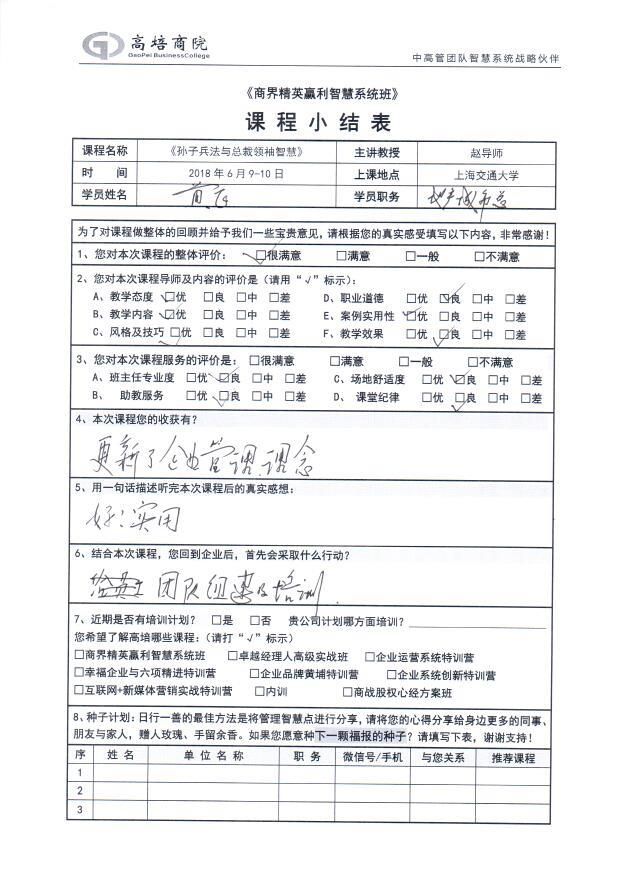 高培商院
GaoPei BusinessCollege
中高管团队智慧系统战略伙伴
《商界精英赢利智慧系统班》
课程小结表
课程名称 《孙子兵法与总裁领袖智慧》 主讲教授 赵导师
时 间 2018年6月9-10日 上课地点 上海交通大学
学员姓名 黄 学员职务
为了对课程做整体的回顾并给予我们一些宝贵意见,请根据您的真实感受填写以下内容,非常感谢!
1、您对本次课程的整体评价: ☑很满意 □满意 □一般 □不满意
2、您对本次课程导师及内容的评价是(请用“√”标示):
A、教学态度 ☑优 □良 □中 □差 D、职业道德 □优 ☑良 □中 □差
B、教学内容 ☑优 □良 □中 □差 E、案例实用性 ☑优 □良 □中 □差
C、风格及技巧 ☑优 □良 □中 □差 F、教学效果 □优 ☑良 □中 □差
3、您对本次课程服务的评价是: □很满意 □满意 □一般 □不满意
A、班主任专业度 □优 ☑良 □中 □差 C、场地舒适度 □优 ☑良 □中 □差
B、 助教服务 □优 ☑良 □中 □差 D、课堂纪律 □优 ☑良 □中 □差
4、本次课程您的收获有?
更新了企业管理理念
5、用一句话描述听完本次课程后的真实感想:
好!实用
6、结合本次课程,您回到企业后,首先会采取什么行动?
团队组建及培训
7、近期是否有培训计划? □是 □否 贵公司计划哪方面培训?
您希望了解高培哪些课程:(请打“√”标示)
□商界精英赢利智慧系统班 □卓越经理人高级实战班 □企业运营系统特训营
□幸福企业与六项精进特训营 □企业品牌黄埔特训营 □企业系统创新特训营
□互联网+新媒体营销实战特训营 □内训 □商战股权心经方案班
8、种子计划:日行一善的最佳方法是将管理智慧点进行分享,请将您的心得分享给身边更多的同事、
朋友与家人,赠人玫瑰、手留余香。如果您愿意种下一颗福报的种子?请填写下表,谢谢支持!
序 姓 名 单 位 名 称 职 务 微信号/手机 与您关系 推荐课程
1
2
3